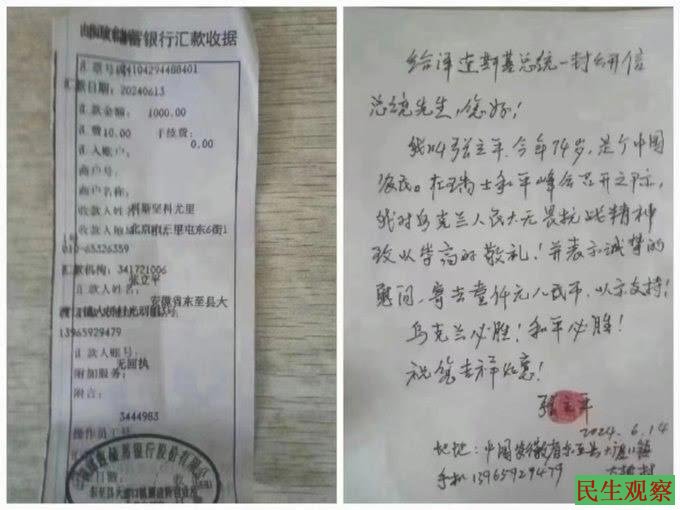 银行汇款收据
汇票号码4104294488401
汇款日期: 20240613
汇款金额: 1000.00
汇费10.00 手续费:
0.00
汇入账户:
商户号:
商户名称:
收款人姓名:科斯坚科尤里
收款人地址:北京三里屯东6街1
010-65326359
汇款机构: 341721006
张立平
汇款人姓名:
安徽省东至县大
13965929479
汇款人账号:
无回执
附加服务:
附言:
3444983
操作员工号
银行股份有限公司
给泽连斯基总统一封公开信
总统先生,您好!
我叫张立平,今年74岁,是个中国
农民。在瑞士和平峰会召开之际,
我对乌克兰人民大无畏抗战精神
致以崇高的敬礼!并表示诚挚的
慰问,寄去壹仟元人民币,以示支持!
乌克兰必胜!和平必胜!
祝您吉祥如意!
张立平
2024.6.14
地址:中国安徽省东至县大渡口镇
手机13965929479
民生观察